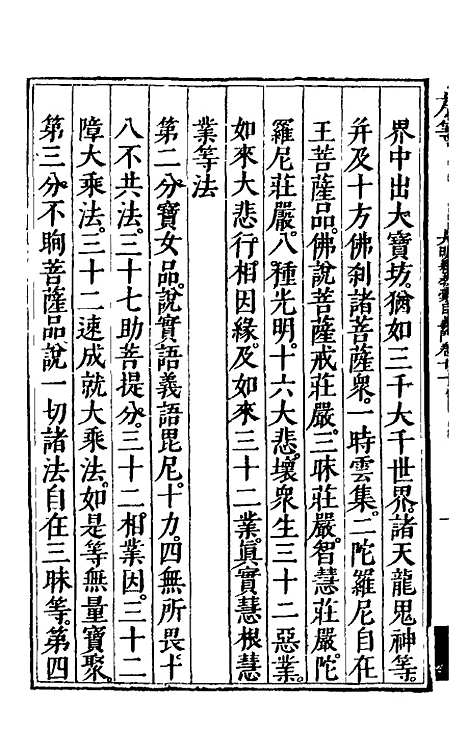 界中出大寶坊。猶如三千大千世界。諸天龍鬼神等。
并及十方佛刹諸菩薩衆。一時雲集。二陀羅尼自在
王菩薩品。佛說菩薩戒莊嚴。三昧莊嚴。智慧莊嚴。陀
羅尼莊嚴。八種光明。十六大悲。壞衆生三十二惡業。
如來大悲行。相因緣。及如來三十二業。眞實慧根慧
業等法
第二分寶女品。說實語義語毘尼。十力。四無所畏。十
八不共法。三十七助菩提分。三十二相業因。三十二
障大乘法。三十二速成就大乘法。如是等無量寶聚。
第三分不眴菩薩品。說一切諸法自在三昧等。第四